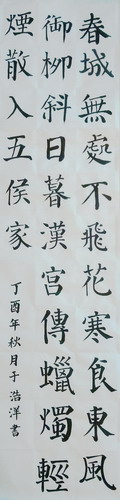 春城無處不飛花寒食東風
御柳斜日暮漢宮傳蠟燭輕
煙散入五侯家
丁酉年秋月于浩洋書